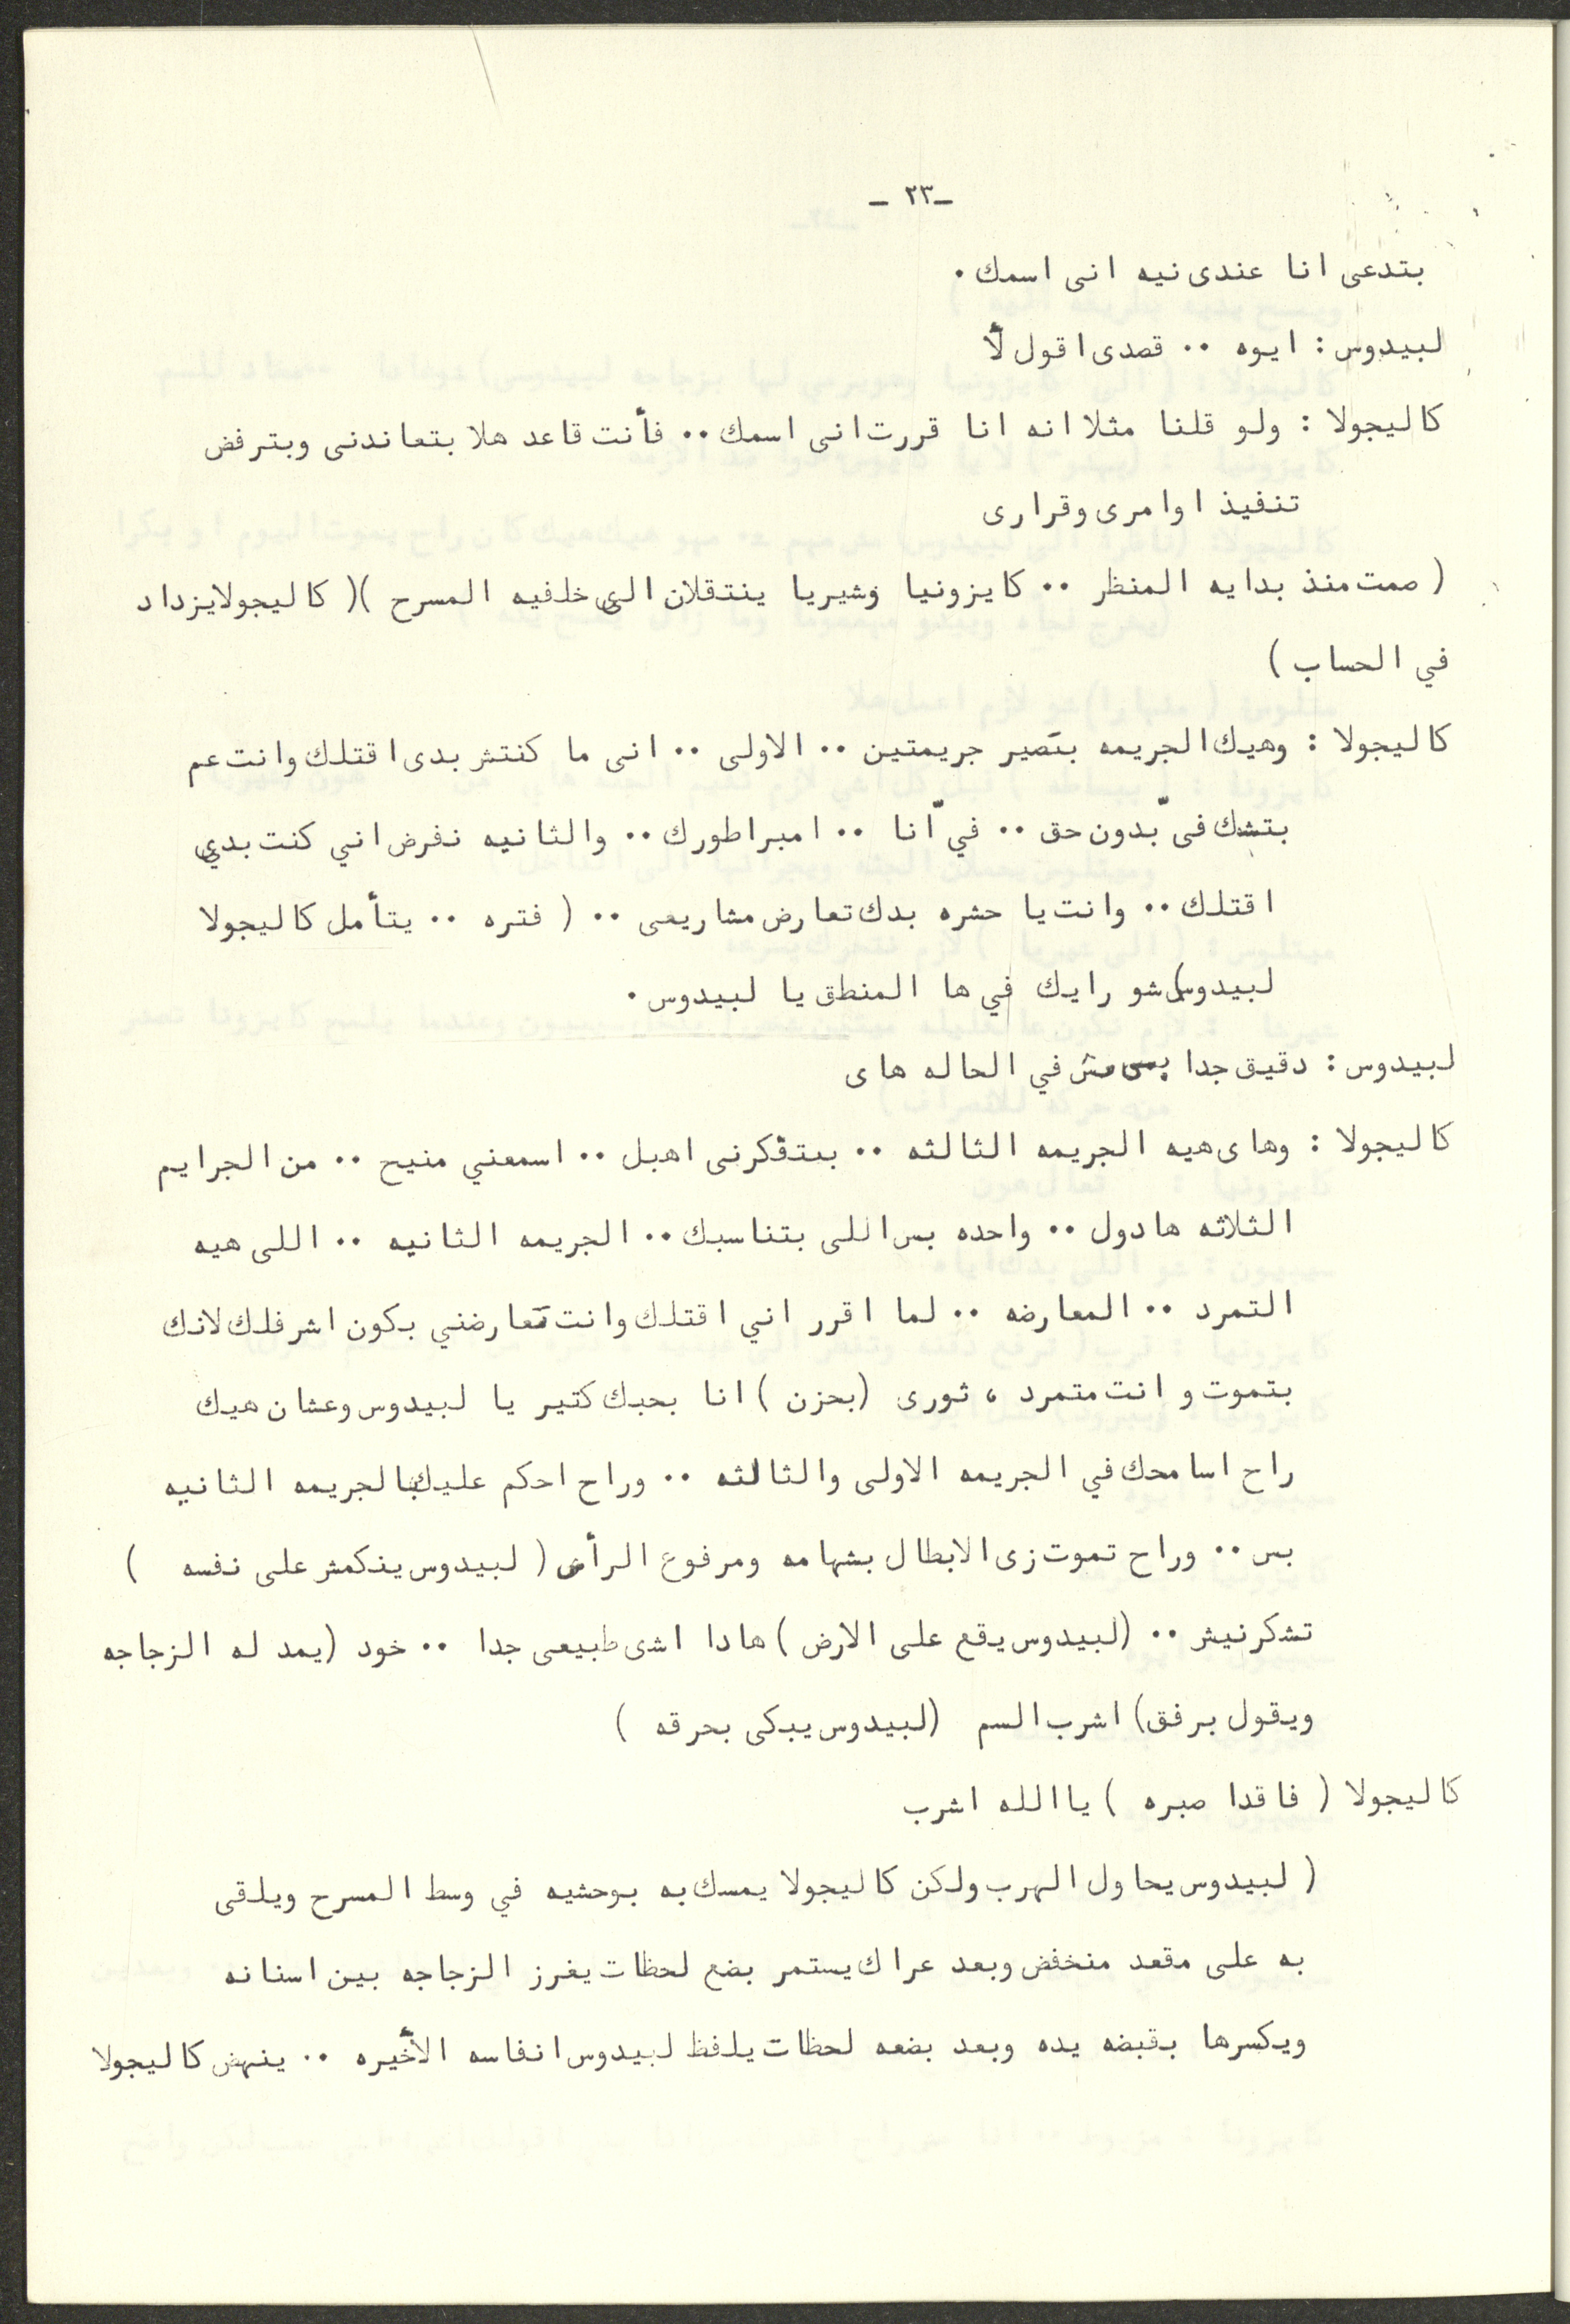 ـ٢٣ ـ
بتدعى انا عندى نيه انى اسمك .
لبيدوس : ايوه .. قصدى اقول لأ
كاليجولا : ولو قلنا مثلا انه انا قررت انى اسمك .. فأنت قاعد هلا بتعاندنى وبترفض
تنفيذ اوامرى وقرارى
( صمت منذ بدايه المنظر .. كايزونيا وشيريا ينتقلان الى خلفيه المسرح )( كاليجولا يزداد
في الحساب )
كاليجولا : وهيك الجريمه بتصير جريمتين .. الاولى .. انى ما كنتش بدى اقتلك وانت عم
بتشك فىّ بدون حق .. فيّ انا .. امبراطورك .. والثانيه نفرض اني كنت بدي
اقتلك .. وانت يا حشره بدك تعارض مشاريعى .. ( فتره .. يتأمل كاليجولا
لبيدوس) شو رايك في ها المنطق يا لبيدوس .
لبيدوس : دقيق جدا بس مش في الحاله هاى
كاليجولا : وهاى هيه الجريمه الثالثه .. بتفكرنى اهبل .. اسمعني منيح .. من الجرايم
الثلاثه هادول .. واحده بس اللى بتناسبك .. الجريمه الثانيه .. اللى هيه
التمرد .. المعارضه .. لما اقرر اني اقتلك وانت تعارضني بكون اشرفلك لانك
بتموت و انت متمرد ، ثورى (بحزن ) انا بحبك كتير يا لبيدوس وعشان هيك
راح اسامحك في الجريمه الاولى والثالثه .. وراح احكم عليك بالجريمه الثانيه
بس .. وراح تموت زى الابطال بشهامه ومرفوع الرأس ( لبيدوس ينكمش على نفسه )
تشكرنيش .. (لبيدوس يقع على الارض ) هادا اشى طبيعى جدا .. خود (يمد له الزجاجه
ويقول برفق) اشرب السم (لبيدوس يبكى بحرقه )
كاليجولا ( فاقدا صبره ) ياالله اشرب
( لبيدوس يحاول الهرب ولكن كاليجولا يمسك به بوحشيه في وسط المسرح ويلقى
به على مقعد منخفض وبعد عراك يستمر بضع لحظات يغرز الزجاجه بين اسنانه
ويكسرها بقبضه يده وبعد بضعه لحظات يلفظ لبيدوس انفاسه الأخيره .. ينهض كاليجولا